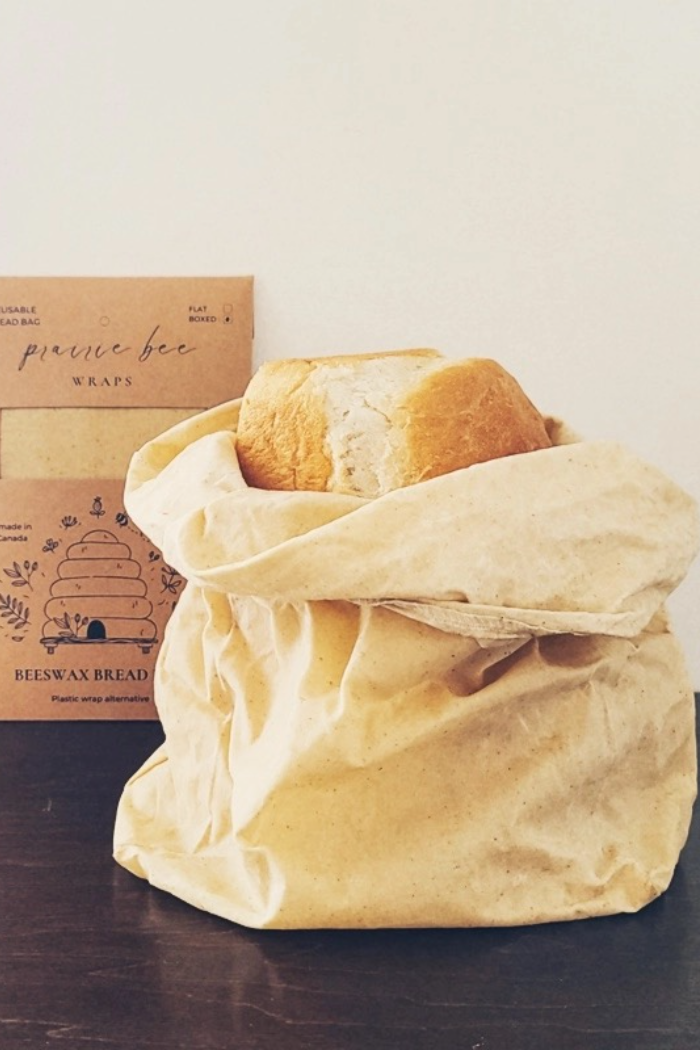 USABLE
EAD BAG
FLAT
BOXED
prairie bee
WRAPS
made in
Canada
BEESWAX BREAD
Plastic wrap alternative